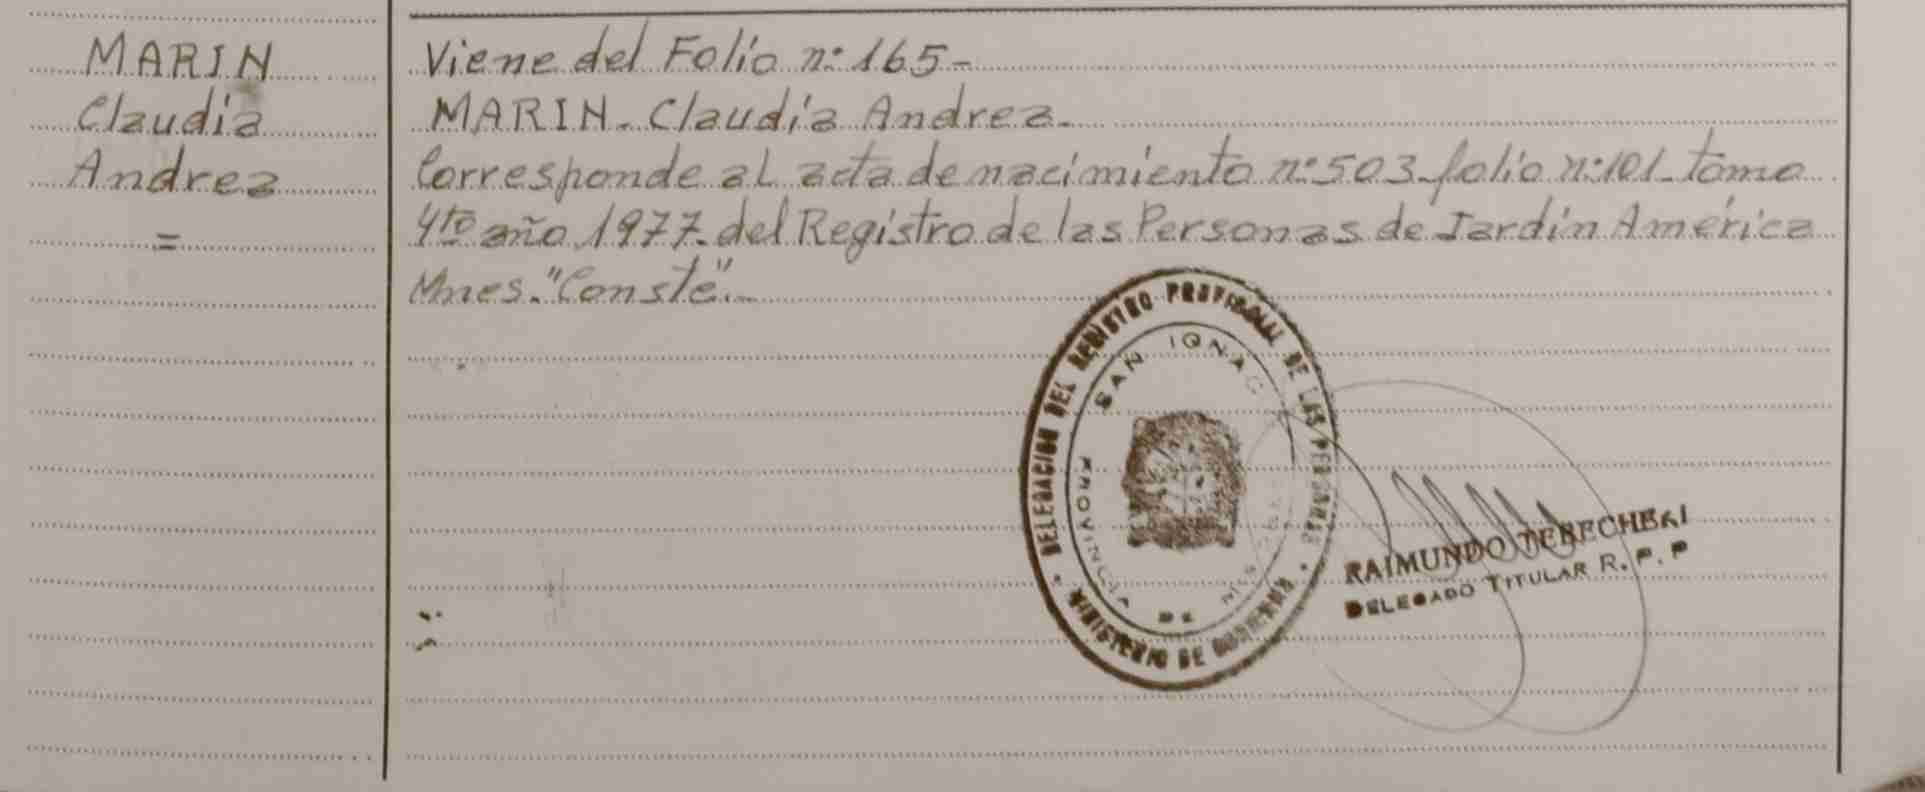 MARIN
Claudia
Andrea
=
Viene del Folio nº 165-
MARIN- Claudia Andrea-
Corresponde al acta de nacimiento nº 503-folio nº 101-tomo
4to año 1977-del Registro de las Personas de Jardín América
Mnes. "Conste".-
DELEGACION DEL REGISTRO PROVINCIAL DE LAS PERSONAS
SAN IGNAC
PROVINCIA DE MISIONES
MINISTERIO DE GOBIERNO
RAIMUNDO
DELEGADO TITULAR R. P. P